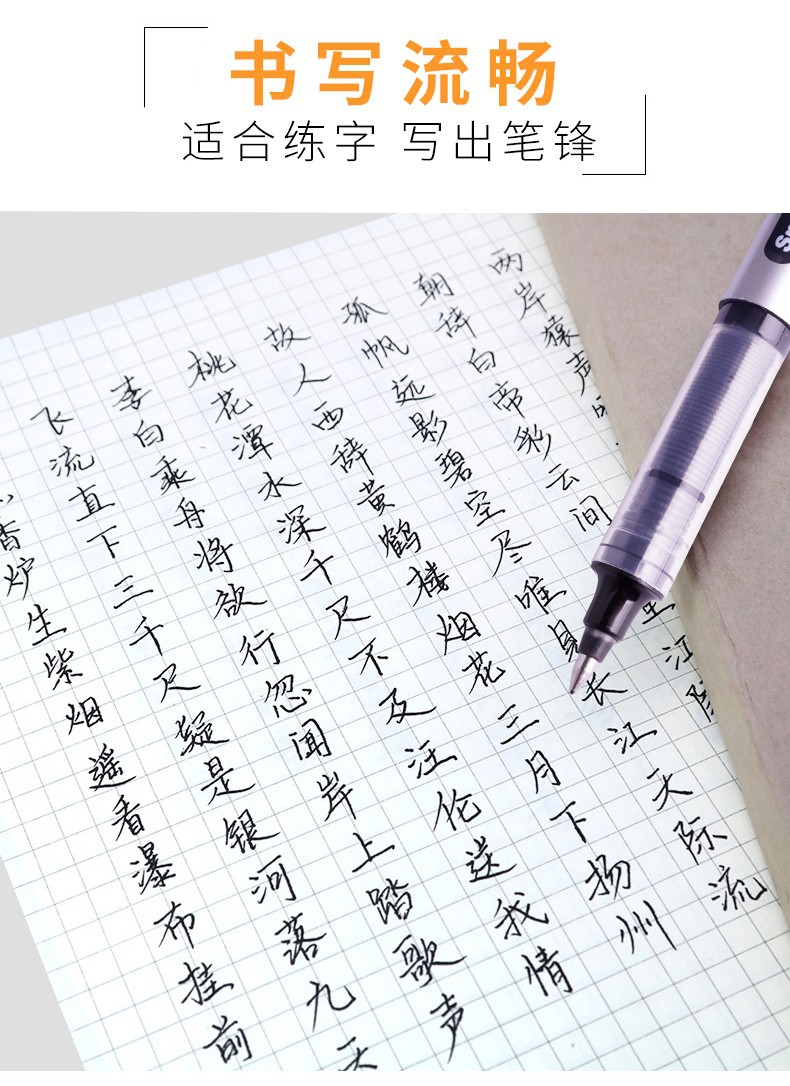 书写流畅
适合练字 写出笔锋
两岸猿声
朝辞白帝彩云间里江
孤帆远影碧空尽唯见长江天际流
故人西辞黄鹤楼烟花三月下扬州
桃花潭水深千尺不及汪伦送我情
李白乘舟将欲行忽闻岸上踏歌声
飞流直下三千尺疑是银河落九天
香炉生紫烟遥看瀑布挂前